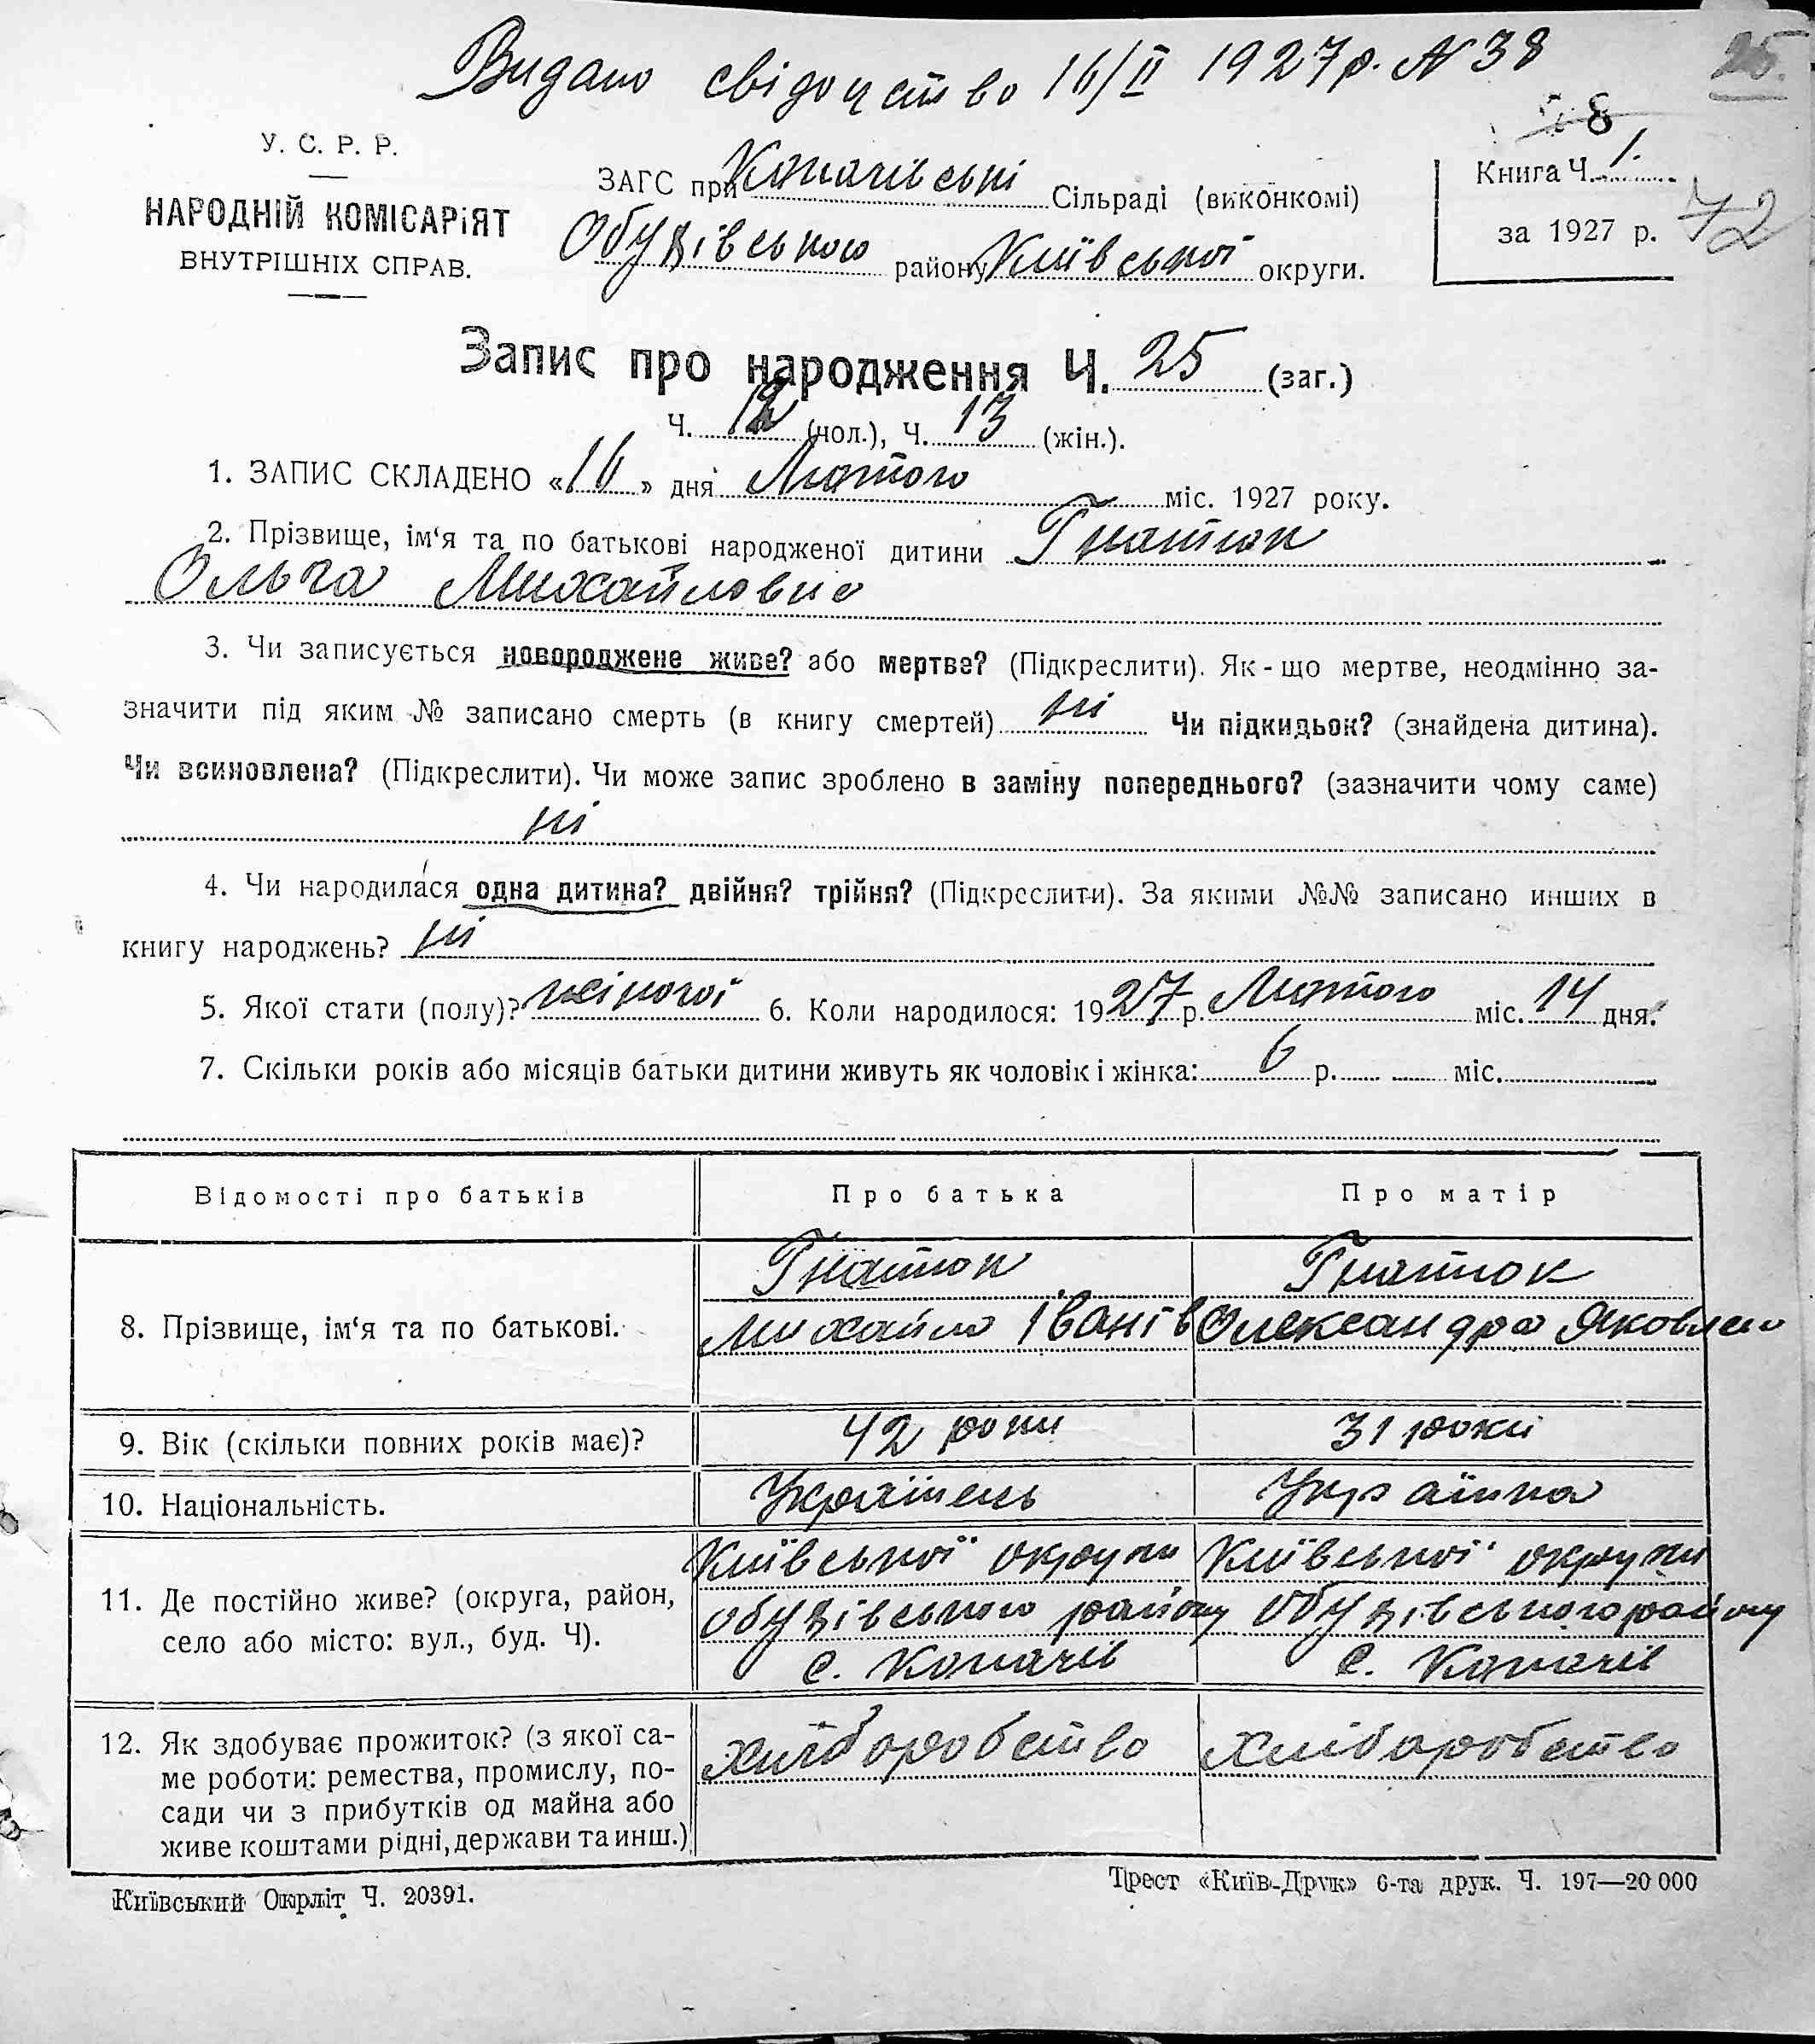 Видано свідоцтво 16/II 1927 р. № 38
25.
8
У. С. Р. Р.
НАРОДНІЙ КОМІСАРІЯТ
ВНУТРІШНІХ СПРАВ.
ЗАГС при Копачівські Сільраді (виконкомі)
Обухівського району Київської округи.
Книга Ч. 1.
за 1927 р.
72
Запис про народження Ч. 25 (заг.)
Ч. 12 (чол.), Ч. 13 (жін.).
1. ЗАПИС СКЛАДЕНО «16» дня Лютого міс. 1927 року.
2. Прізвище, ім‘я та по батькові народженої дитини Гнатюк
Ольга Михайловна
3. Чи записується новороджене живе? або мертве? (Підкреслити). Як-що мертве, неодмінно за-
значити під яким № записано смерть (в книгу смертей) ні Чи підкидьок? (знайдена дитина).
Чи всиновлена? (Підкреслити). Чи може запис зроблено в заміну попереднього? (зазначити чому саме)
ні
4. Чи народилася одна дитина? двійня? трійня? (Підкреслити). За якими №№ записано инших в
книгу народжень? ні
5. Якої стати (полу)? жіночої 6. Коли народилося: 1927 р. Лютого міс. 14 дня.
7. Скільки років або місяців батьки дитини живуть як чоловік і жінка: 6 р. міс.
Відомості про батьків Про батька Про матір
8. Прізвище, ім‘я та по батькові. Гнатюк Гнатюк
Михайло Іванів Олександра Яковлевна
9. Вік (скільки повних років має)? 42 роки 31 роки
10. Національність. Українець Українка
11. Де постійно живе? (округа, район,
село або місто: вул., буд. Ч).
Київської округи Київської округи
Обухівського району Обухівського району
с. Копачів с. Копачів
12. Як здобуває прожиток? (з якої са-
ме роботи: ремества, промислу, по-
сади чи з прибутків од майна або
живе коштами рідні, держави та инш.)
хліборобство хліборобство
Київський Окрліт Ч. 20391.
Трест «Київ-Друк» 6-та друк. Ч. 197—20 000